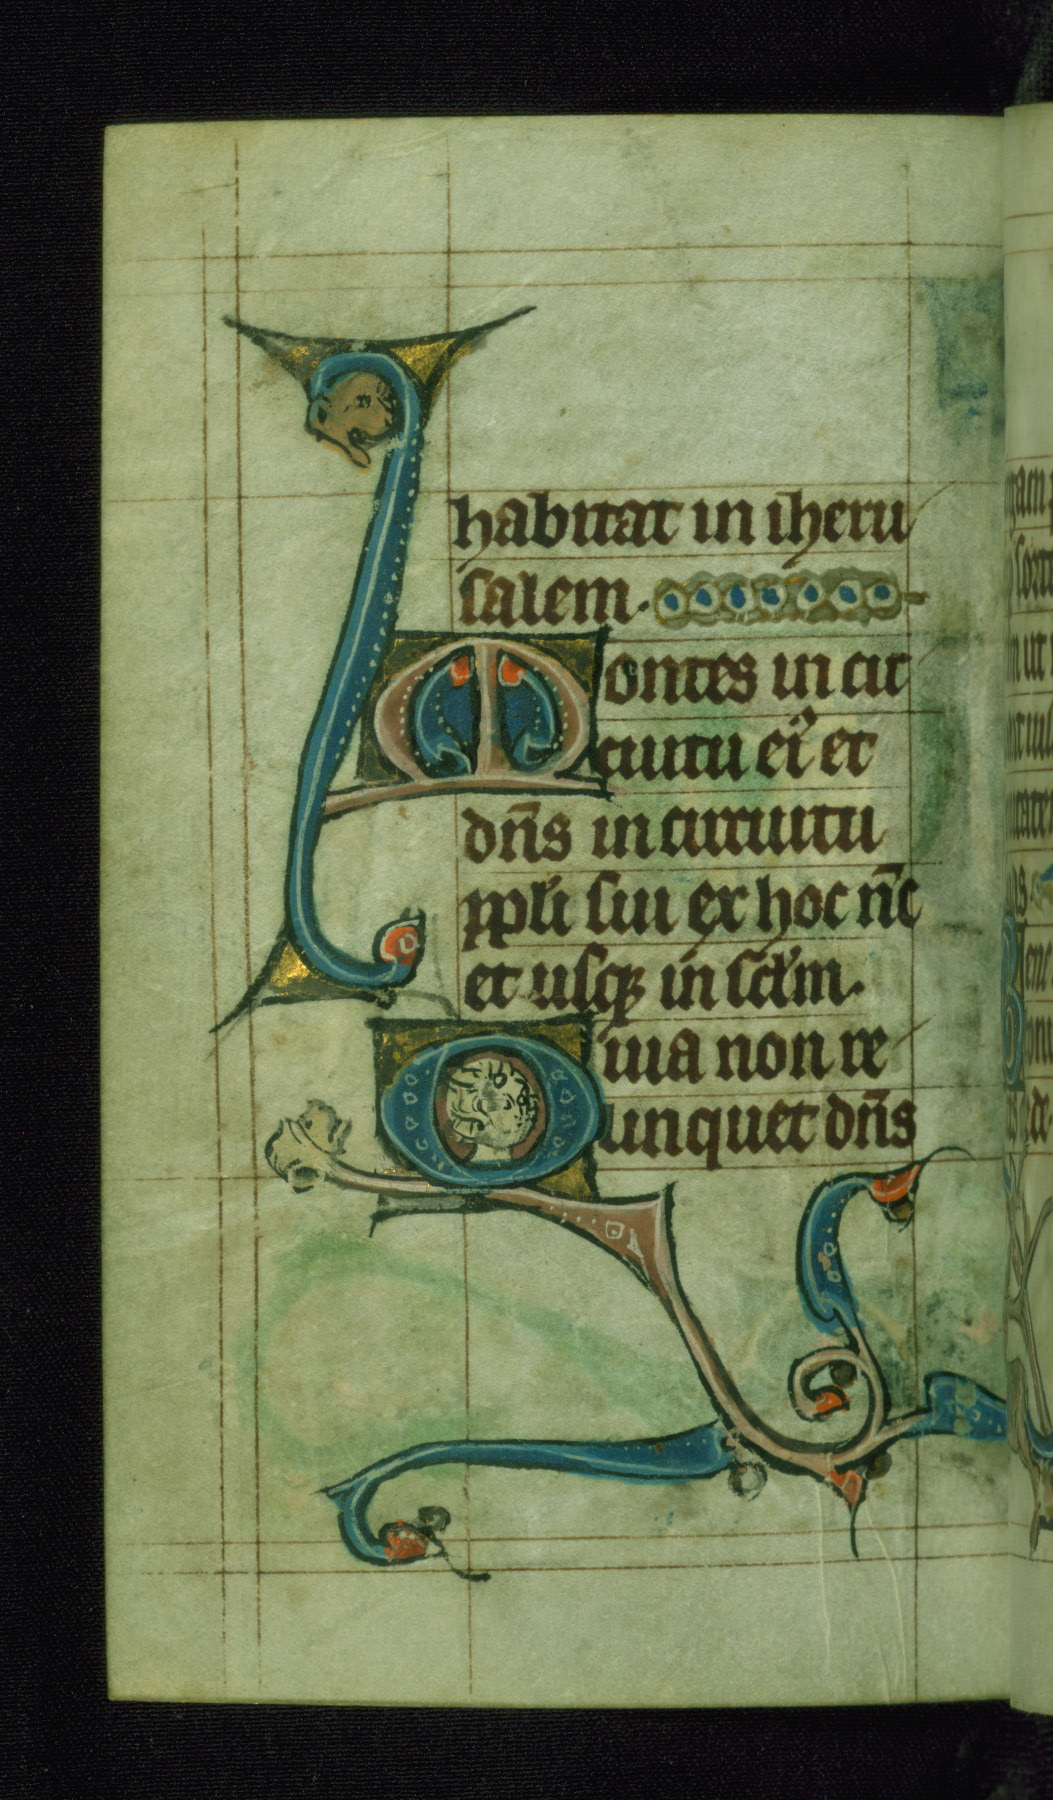 habitat in iheru
salem.
Montes in cir
cuitu ei᾽ et
dn̄s in circuitu
ppl̓i sui ex hoc nc̄
et usq̨ in sc̄lm.
Quia non re
linquet dn̄s